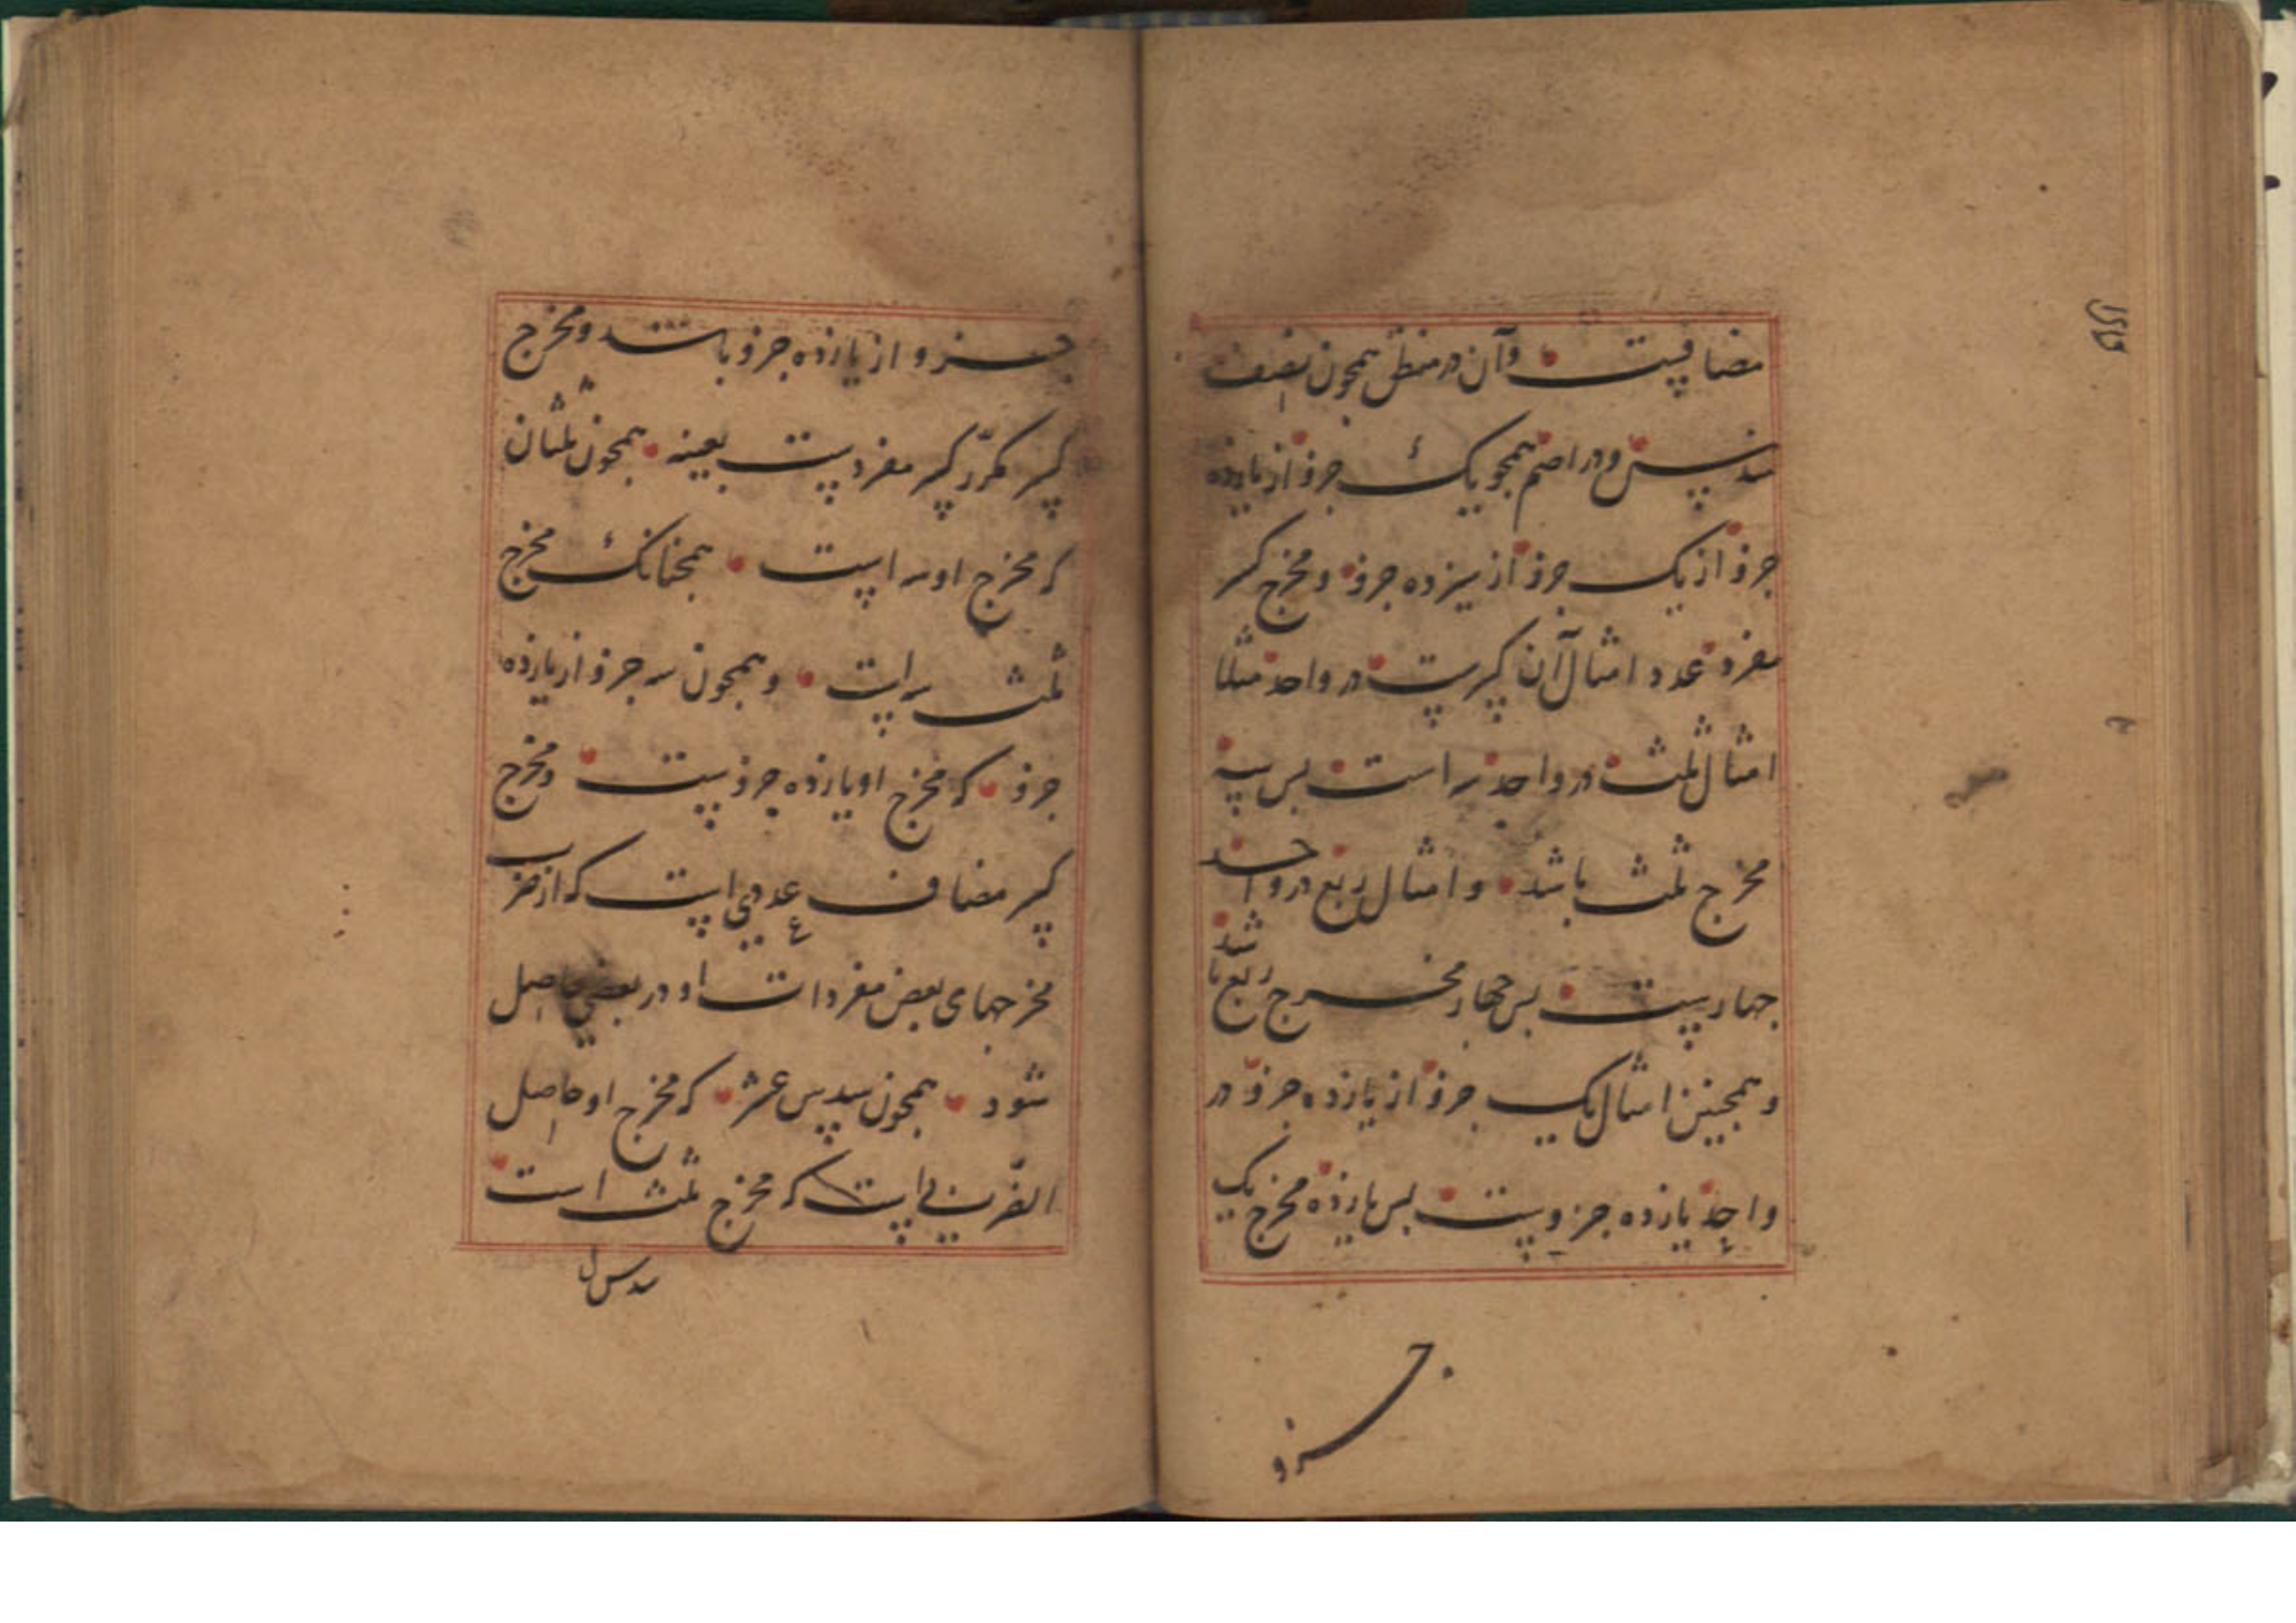 مضافیست و آن در منطق همچون نصف
سدس و در اصم همچو یک جزو از یازده
جزو از یک جزو از سیزده جزو و مخرج کسر
مفرد عدد امثال آن کسرست در واحد مثلا
امثال ثلث در واحد سه است پس سه
مخرج ثلث باشد و امثال ربع در واحد
چهارست پس چهار مخرج ربع باشد
و همچنین امثال یک جزو از یازده جزو در
واحد یازده جزوست پس یازده مخرج یک
جزو
جزو از یازده جزو باشد و مخرج
کسر مکرّر کسر مفردست بعینه همچون ثلثان
که مخرج او سه است همچنانک مخرج
ثلث سه است و همچون سه جزو از یازده
جزو که مخرج او یازده جزوست و مخرج
کسر مضاف عددی است که از ضرب
مخرجهای بعض مفردات او در بعضی حاصل
شود همچون سدس عشر که مخرج او حاصل
الضرب است که مخرج ثلث است